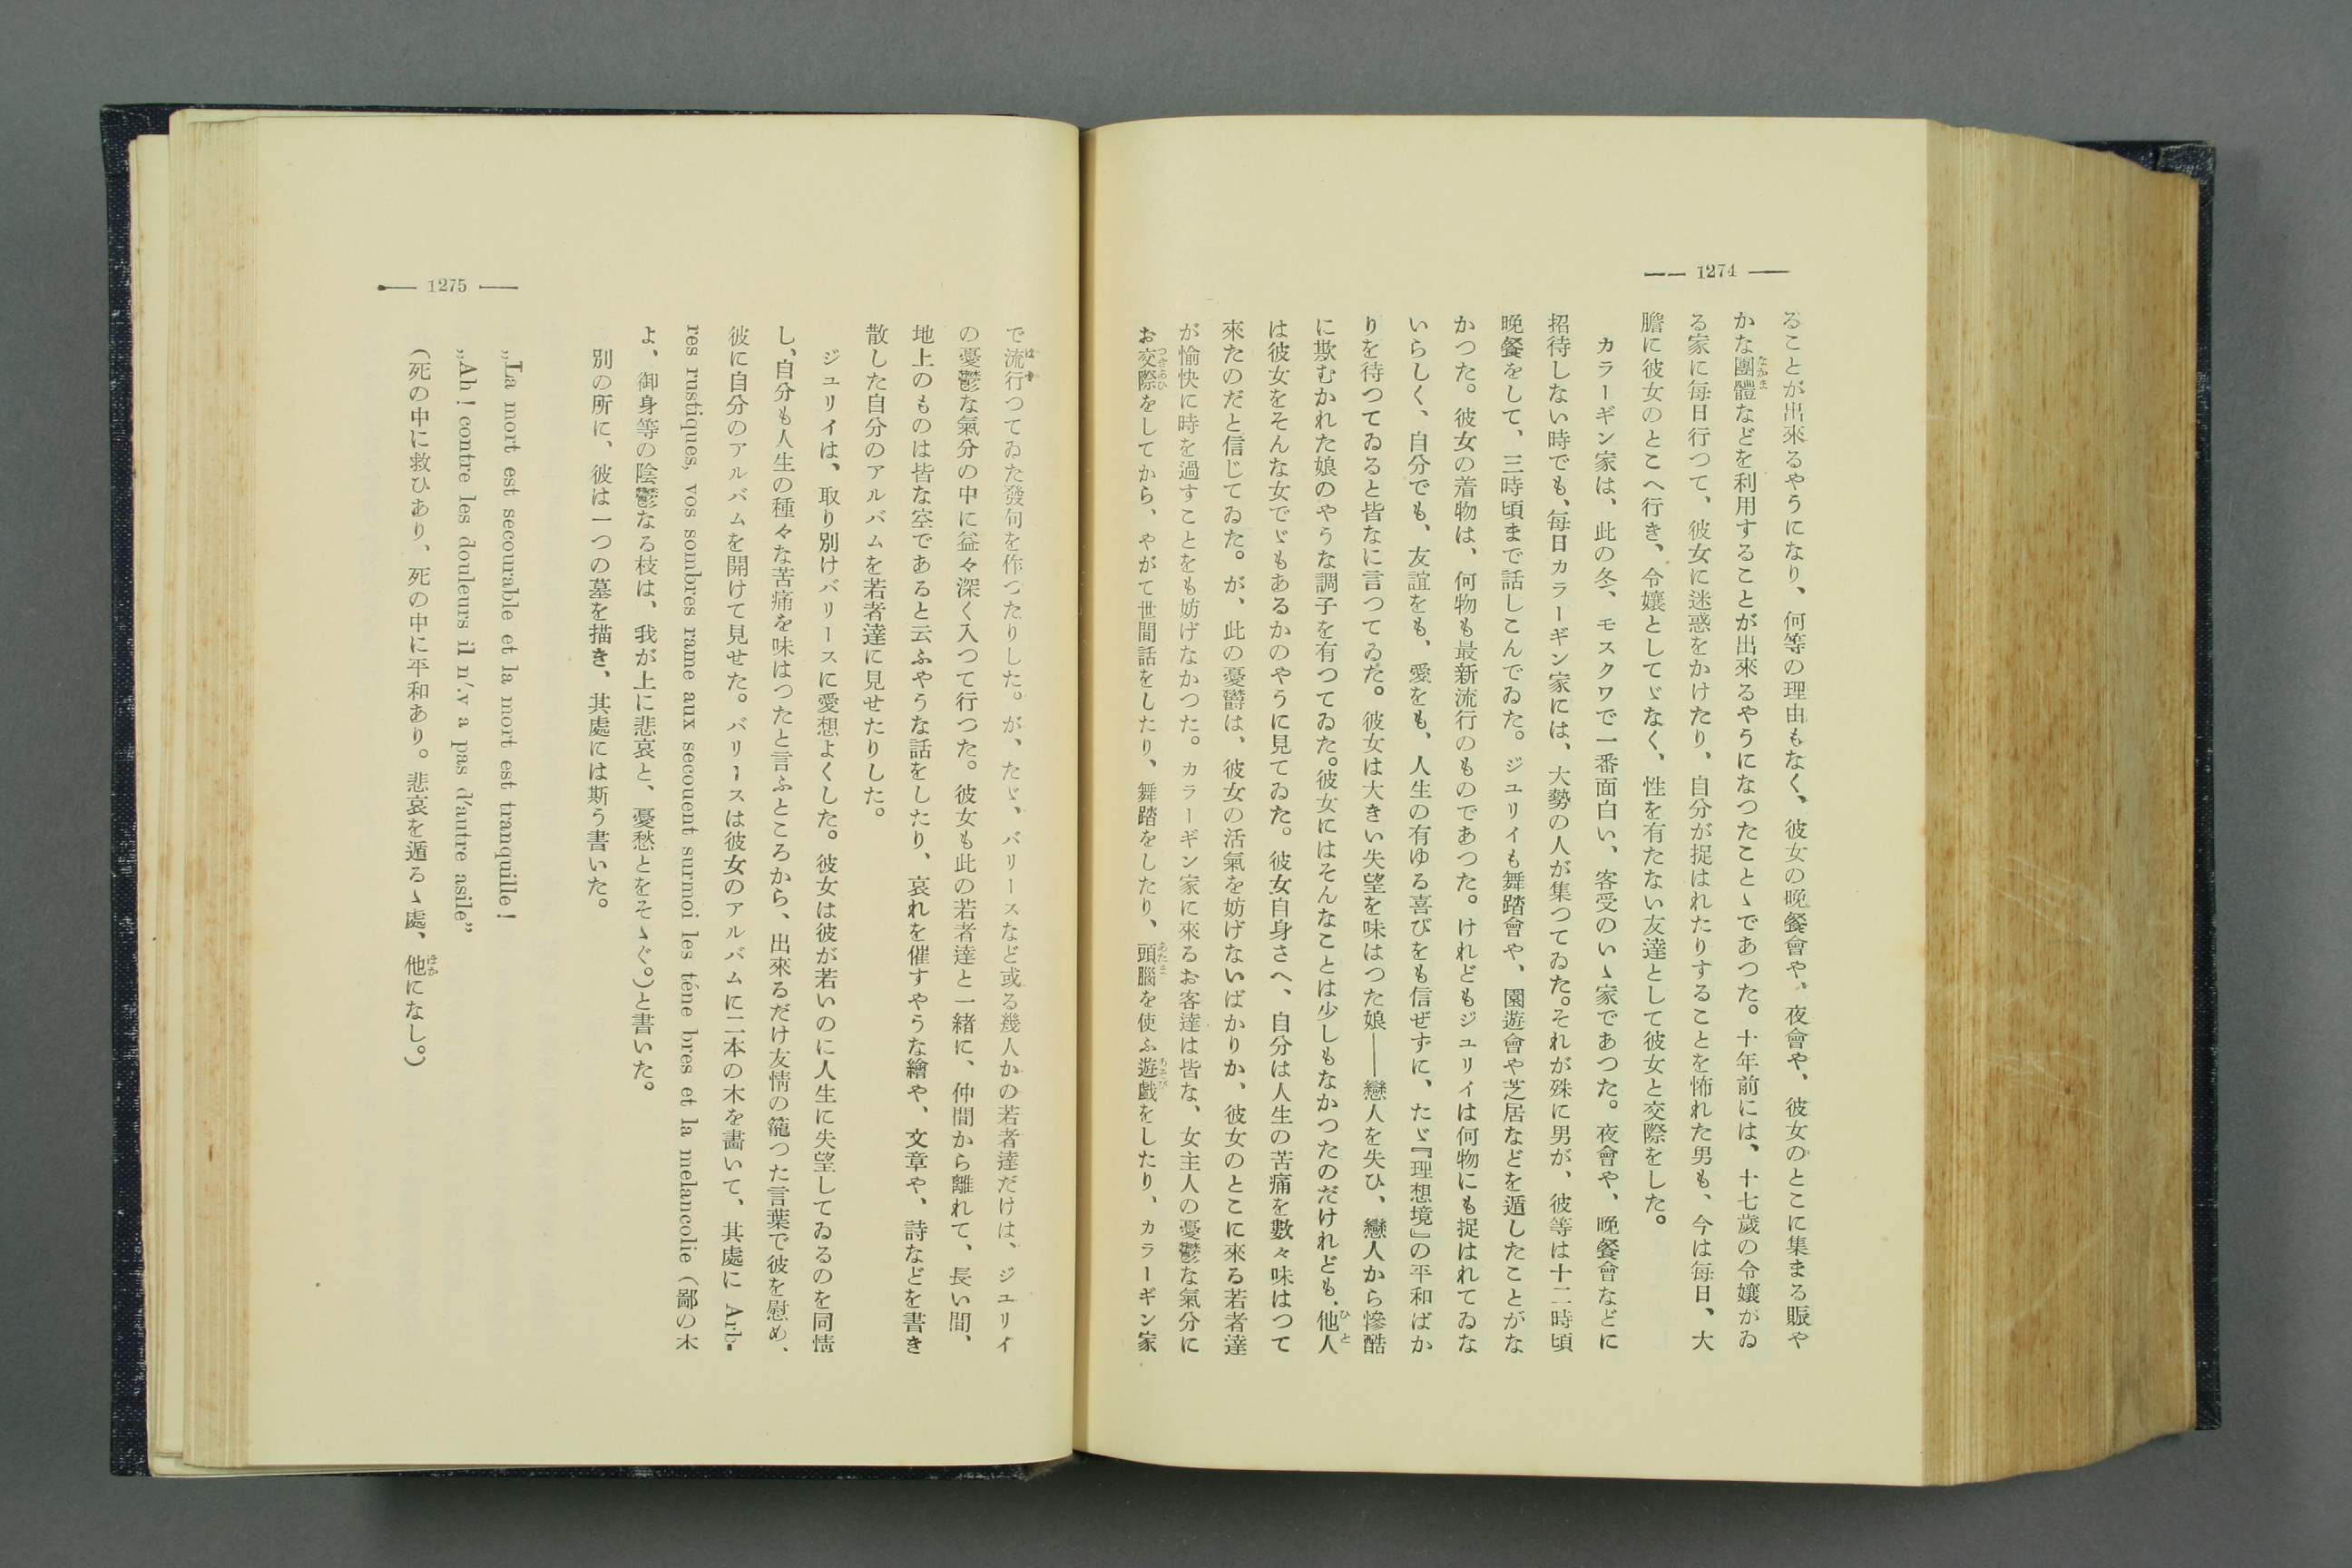 — 1274 —
ることが出來るやうになり、何等の理由もなく、彼女の晩餐會や、夜會や、彼女のとこに集まる賑や
かな團體などを利用することが出來るやうになつたことゝであつた。十年前には、十七歲の令孃がゐ
る家に每日行つて、彼女に迷惑をかけたり、自分が捉はれたりすることを怖れた男も、今は每日、大
膽に彼女のとこへ行き、令孃としてゞなく、性を有たない友達として彼女と交際をした。
カラーギン家は、此の冬、モスクワで一番面白い、客受のいゝ家であつた。夜會や、晩餐會などに
招待しない時でも、每日カラーギン家には、大勢の人が集つてゐた。それが殊に男が、彼等は十二時頃
晩餐をして、三時頃まで話しこんでゐた。ジユリイも舞踏會や、園遊會や芝居などを遁したことがな
かつた。彼女の着物は、何物も最新流行のものであつた。けれどもジユリイは何物にも捉はれてゐな
いらしく、自分でも、友誼をも、愛をも、人生の有ゆる喜びをも信ぜずに、たゞ『理想境』の平和ばか
りを待つてゐると皆なに言つてゐた。彼女は大きい失望を味はつた娘——戀人を失ひ、戀人から慘酷
に欺むかれた娘のやうな調子を有つてゐた。彼女にはそんなことは少しもなかつたのだけれども、他人
は彼女をそんな女でゞもあるかのやうに見てゐた。彼女自身さへ、自分は人生の苦痛を數々味はつて
來たのだと信じてゐた。が、此の憂欝は、彼女の活氣を妨げないばかりか、彼女のとこに來る若者達
が愉快に時を過すことをも妨げなかつた。カラーギン家に來るお客達は皆な、女主人の憂鬱な氣分に
お交際をしてから、やがて世間話をしたり、舞踏をしたり、頭腦を使ふ遊戲をしたり、カラーギン家
— 1275 —
で流行つてゐた發句を作つたりした。が、たゞ、バリースなど或る幾人かの若者達だけは、ジユリイ
の憂鬱な氣分の中に益々深く入つて行つた。彼女も此の若者達と一緖に、仲間から離れて、長い間、
地上のものは皆な空であると云ふやうな話をしたり、哀れを催すやうな繪や、文章や、詩などを書き
散した自分のアルバムを若者達に見せたりした。
ジユリイは、取り別けバリースに愛想よくした。彼女は彼が若いのに人生に失望してゐるのを同情
し、自分も人生の種々な苦痛を味はつたと言ふところから、出來るだけ友情の籠つた言葉で彼を慰め、
彼に自分のアルバムを開けて見せた。バリースは彼女のアルバムに二本の木を畵いて、其處に Arb-
res rustiques, vos sombres rame aux secouent surmoi les téne bres et la melancolie (鄙の木
よ、御身等の陰鬱なる枝は、我が上に悲哀と、憂愁とをそゝぐ。)と書いた。
別の所に、彼は一つの墓を描き、其處には斯う書いた。
„La mort est secourable et la mort est tranquille!
„Ah! contre les douleurs il n'.y a pas d'autre asile”
(死の中に救ひあり、死の中に平和あり。悲哀を遁るゝ處、他になし。)